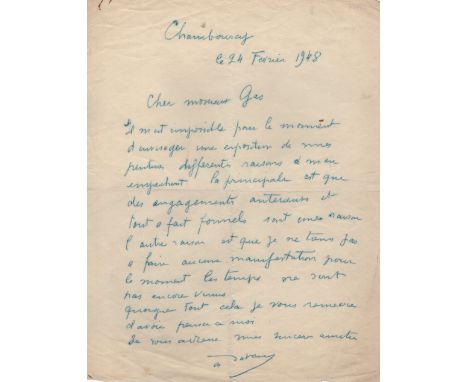 Chambourcy
le 24 Fevrier 1948
Cher monsieur Gas
Il m'est impossible pour le moment
d'envisager une exposition de mes
peintures differentes raisons m'en
empechent la principale est que
des engagements anterieurs et
tout a fait formels sont une raison
l'autre raison est que je ne tiens pas
a faire aucune manifestation pour
le moment les temps ne sont
pas encore venus.
Quoique tout cela je vous remercie
d'avoir penser a moi
Je vous adresse mes sinceres amitiés
a Derain